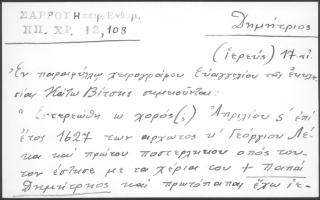 ΣΑΡΡΟΥ Ηπειρ. Ενθυμ. Δημήτριος
ΗΠ. ΧΡ. 12, 108
(ἱερεύς) 17 αἰ.
Ἐν παραφύλλῳ χειρογράφου Εὐαγγελίου τῆς ἐκκλη-
σίας Κάτω Βίτσης σημειοῦται:
"Ἐστερεώθη ω χορός(;) Ἀπριλίου ς' ἐπὶ
ἔτος 1627 των αρχωτος κ' Γεόργιου Λέ-
κα και πρώτου ποστερληκου οπός του-
τον έστισε με τα χέρια του + παπᾶ
Δημήτρηος και πρωτόπαπας έχω ιε-